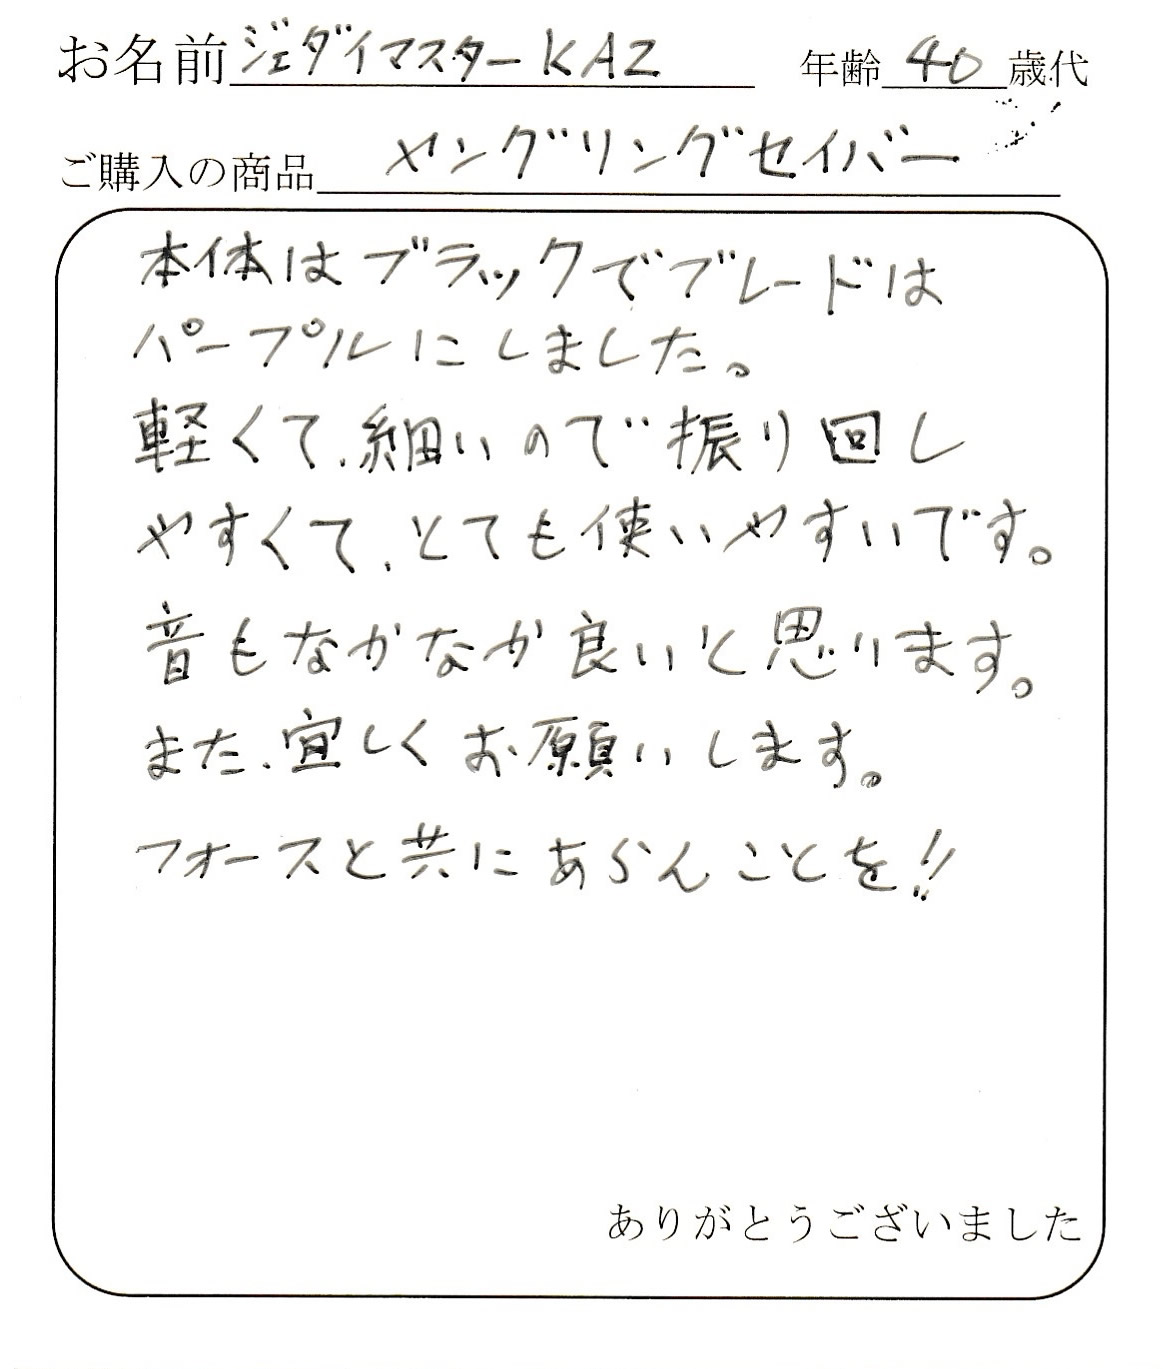 お名前 ジェダイマスターKAZ 年齢 40 歳代
ご購入の商品 ヤングリングセイバー
本体はブラックでブレードは
パープルにしました。
軽くて、細いので振り回し
やすくて、とても使いやすいです。
音もなかなか良いと思います。
また、宜しくお願いします。
フォースと共にあらんことを!!
ありがとうございました